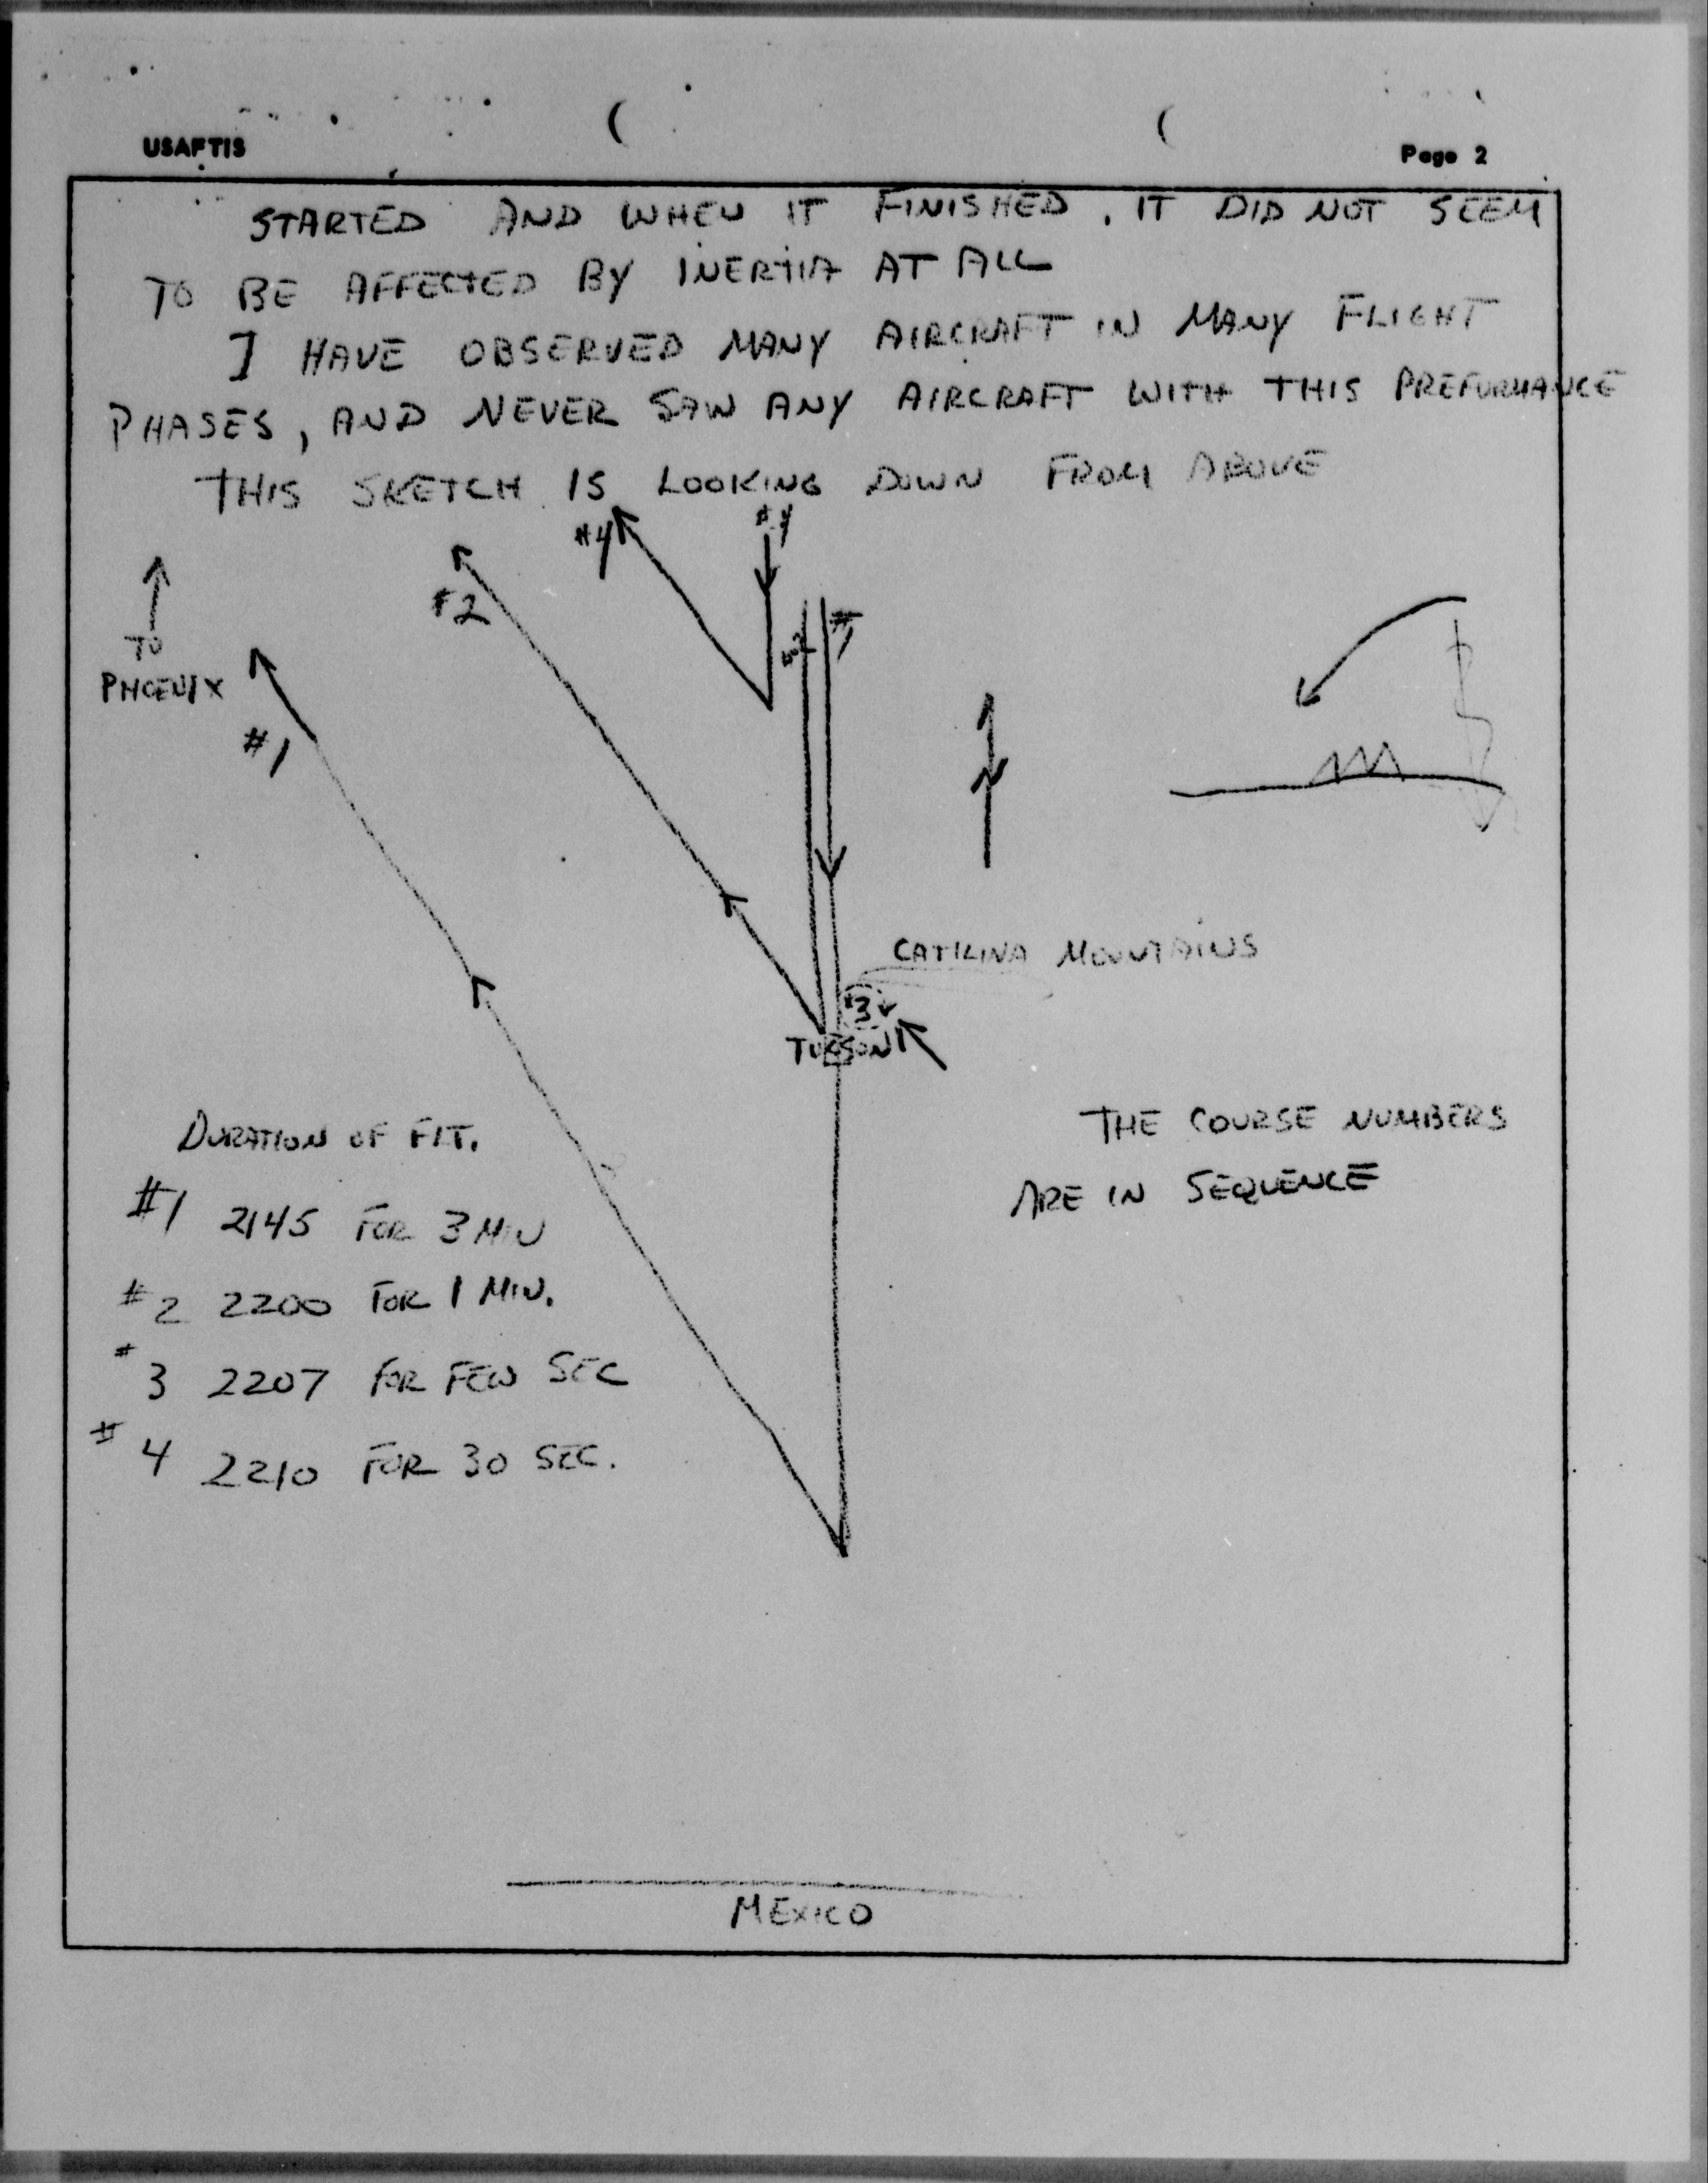 USAFTIS
Page 2
STARTED AND WHEN IT FINISHED. IT DID NOT SEEM
TO BE AFFECTED BY INERTIA AT ALL
I HAVE OBSERVED MANY AIRCRAFT IN MANY FLIGHT
PHASES, AND NEVER SAW ANY AIRCRAFT WITH THIS PREFORMANCE
THIS SKETCH IS LOOKING DOWN FROM ABOVE
#4
#4
#2
#2
#1
TO
PHOENIX
#1
N
CATILINA MOUNTAINS
#3
TUCSON
DURATION OF FLT.
#1 2145 FOR 3 MIN
#2 2200 FOR 1 MIN.
#3 2207 FOR FEW SEC
#4 2210 FOR 30 SEC.
THE COURSE NUMBERS
ARE IN SEQUENCE
MEXICO